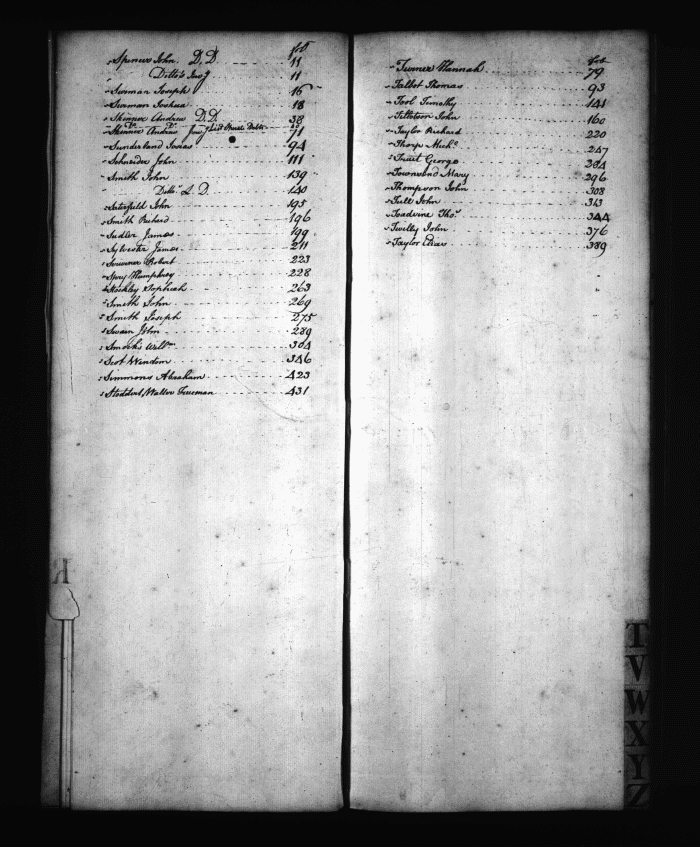 fol
Spencer John D.D. 11
Ditto's Invy 11
Surman Joseph 16
Surman Joshua 18
Skinner Andrew D.D. 38
Skinner Andrew Invy List Sperate Debts 71
Sunderland Josias 94
Schneider John 111
Smith John 139
Ditto L.D. 140
Saterfield John 195
Smith Richard 196
Sudler James 199
Sylvester James 211
Souvener Robert 223
Spry Humphrey 228
Stockley Sophiah 263
Smith John 269
Smith Joseph 275
Swain John 289
Smock's Willm 304
Scot Wandom 346
Simmons Abraham 423
Stoddert Walter Trueman 431
fol
Turner Hannah 79
Talbot Thomas 93
Tool Timothy 141
Tillotson John 160
Taylor Richard 220
Thorp Michl 247
Truit George 284
Townsend Mary 296
Thompson John 308
Tull John 313
Toadvine Thos 344
Twilly John 376
Taylor Elias 389
K
T
V
W
X
Y
Z